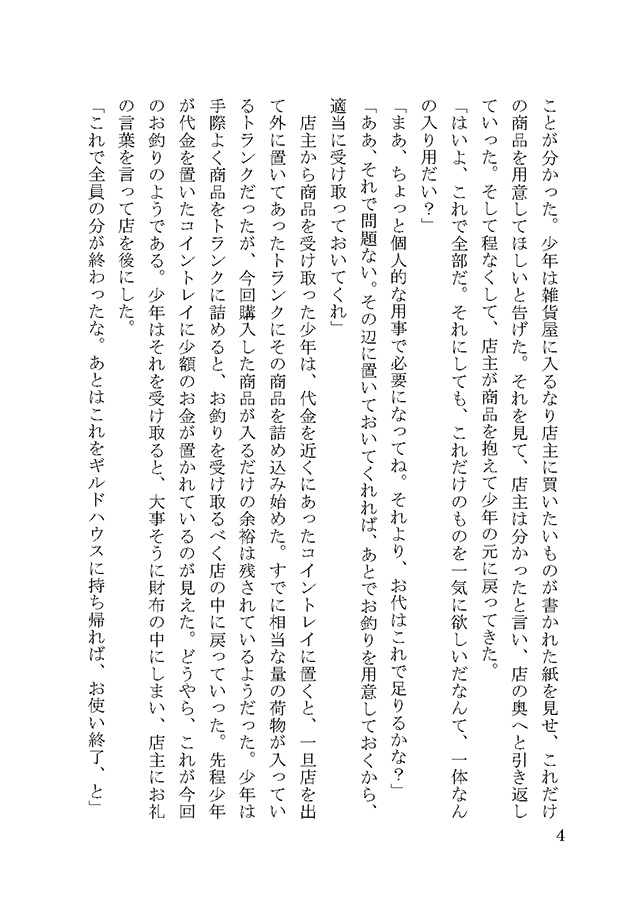 ことが分かった。少年は雑貨屋に入るなり店主に買いたいものが書かれた紙を見せ、これだけ
の商品を用意してほしいと告げた。それを見て、店主は分かったと言い、店の奥へと引き返し
ていった。そして程なくして、店主が商品を抱えて少年の元に戻ってきた。
「はいよ、これで全部だ。それにしても、これだけのものを一気に欲しいだなんて、一体なん
の入り用だい？」
「まあ、ちょっと個人的な用事で必要になってね。それより、お代はこれで足りるかな？」
「ああ、それで問題ない。その辺に置いておいてくれれば、あとでお釣りを用意しておくから、
適当に受け取っておいてくれ」
店主から商品を受け取った少年は、代金を近くにあったコイントレイに置くと、一旦店を出
て外に置いてあったトランクにその商品を詰め込み始めた。すでに相当な量の荷物が入ってい
るトランクだったが、今回購入した商品が入るだけの余裕は残されているようだった。少年は
手際よく商品をトランクに詰めると、お釣りを受け取るべく店の中に戻っていった。先程少年
が代金を置いたコイントレイに少額のお金が置かれているのが見えた。どうやら、これが今回
のお釣りのようである。少年はそれを受け取ると、大事そうに財布の中にしまい、店主にお礼
の言葉を言って店を後にした。
「これで全員の分が終わったな。あとはこれをギルドハウスに持ち帰れば、お使い終了、と」
4